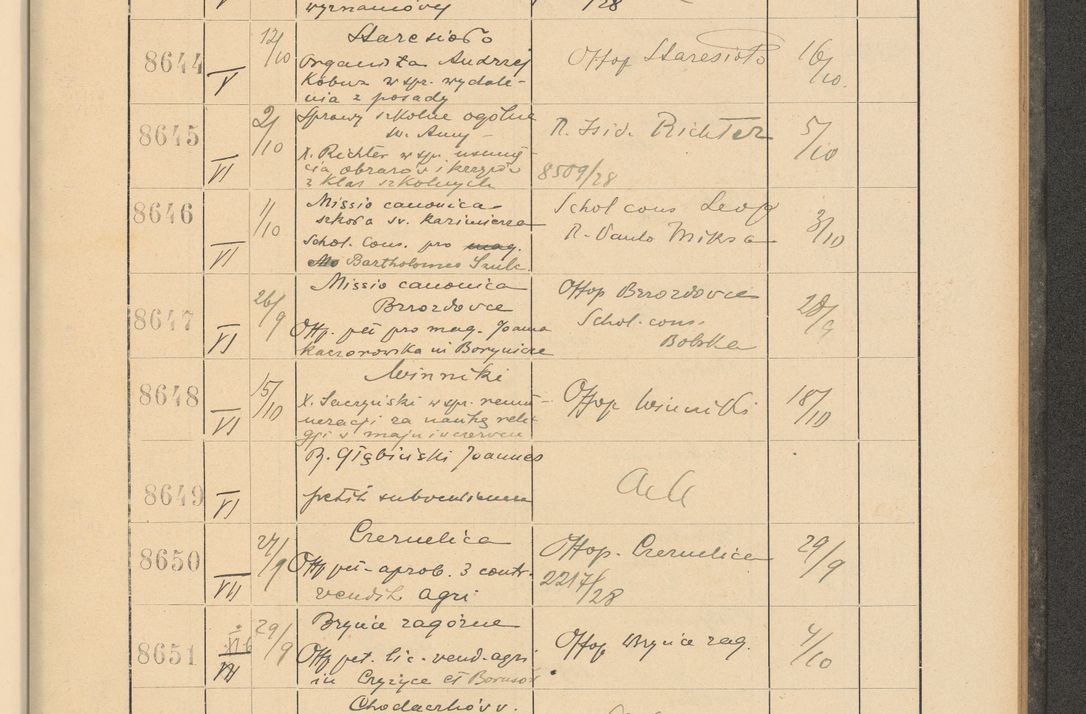 wyznaniowej /28
8644 V 12/10 Staresioło Offop Staresioło 16/10
organista Andrzej
Kobuz w spr. wydale-
nia z posady
8645 VI 2/10 Sprawy szkolne ogólne R. Isid. Richter 5/10
w. Anny -
X. Richter w spr. usunię- 8509/28
cia obrazów i krzyżów
z klas szkolnych
8646 VI 1/10 Missio canonica Schol cons. Leop 3/10
szkoła św. Kazimierza R. Paulo Miksa
Schol. Cons. pro mag.
Bartholomeo Szulc
8647 VI 26/9 Missio canonica Offop Brzozdowce 28/9
Brzozdowce Schol. cons.
Off. pet pro mag. Joanna Bobrka
Kaczorowska in Borynicze
8648 VI 15/10 Winniki Offop Winniki 18/10
X. Saczyński w spr. remu-
neracji za naukę reli-
gji w maju i czerwcu
8649 VI R. Głębiński Joannes
petit subventionem
8650 VII 27/9 Czernelica Offop. Czernelica 29/9
Off pet. aprob. 3 contr. 2217/28
vendit agri
8651 VI 6 VII 29/9 Brynie zagórne Offop Brynie zag. 4/10
Off pet. lic. vend. agri
in Cryżyce et
Chodaczków w.